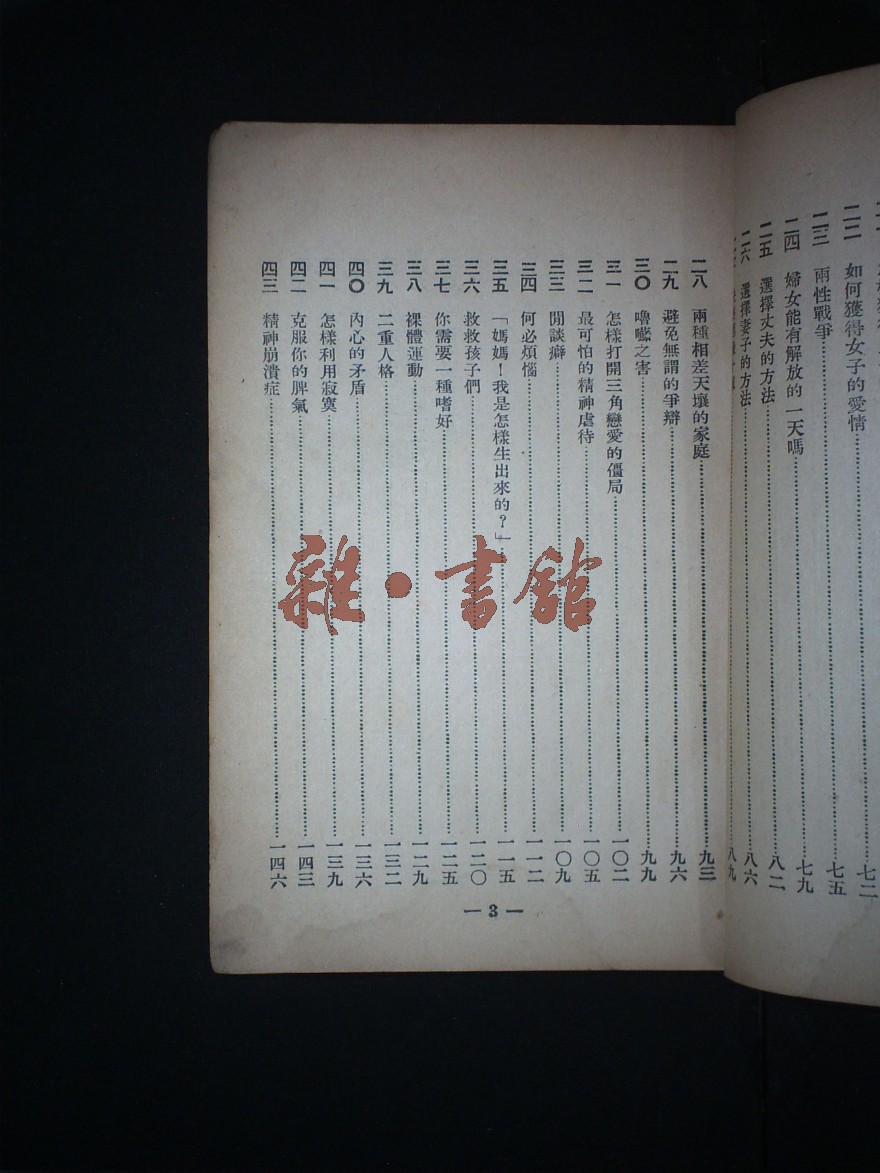 二二 如何獲得女子的愛情 七二
二三 兩性戰爭 七五
二四 婦女能有解放的一天嗎 七九
二五 選擇丈夫的方法 八二
二六 選擇妻子的方法 八六
八九
二八 兩種相差天壤的家庭 九三
二九 避免無謂的爭辯 九六
三〇 嚕囌之害 九九
三一 怎樣打開三角戀愛的僵局 一〇二
三二 最可怕的精神虐待 一〇五
三三 閒談癖 一〇九
三四 何必煩惱 一一二
三五 「媽媽!我是怎樣生出來的?」 一一五
三六 救救孩子們 一二〇
三七 你需要一種嗜好 一二五
三八 裸體運動 一二九
三九 二重人格 一三二
四〇 內心的矛盾 一三六
四一 怎樣利用寂寞 一三九
四二 克服你的脾氣 一四三
四三 精神崩潰症 一四六
— 3 —
雜·書館